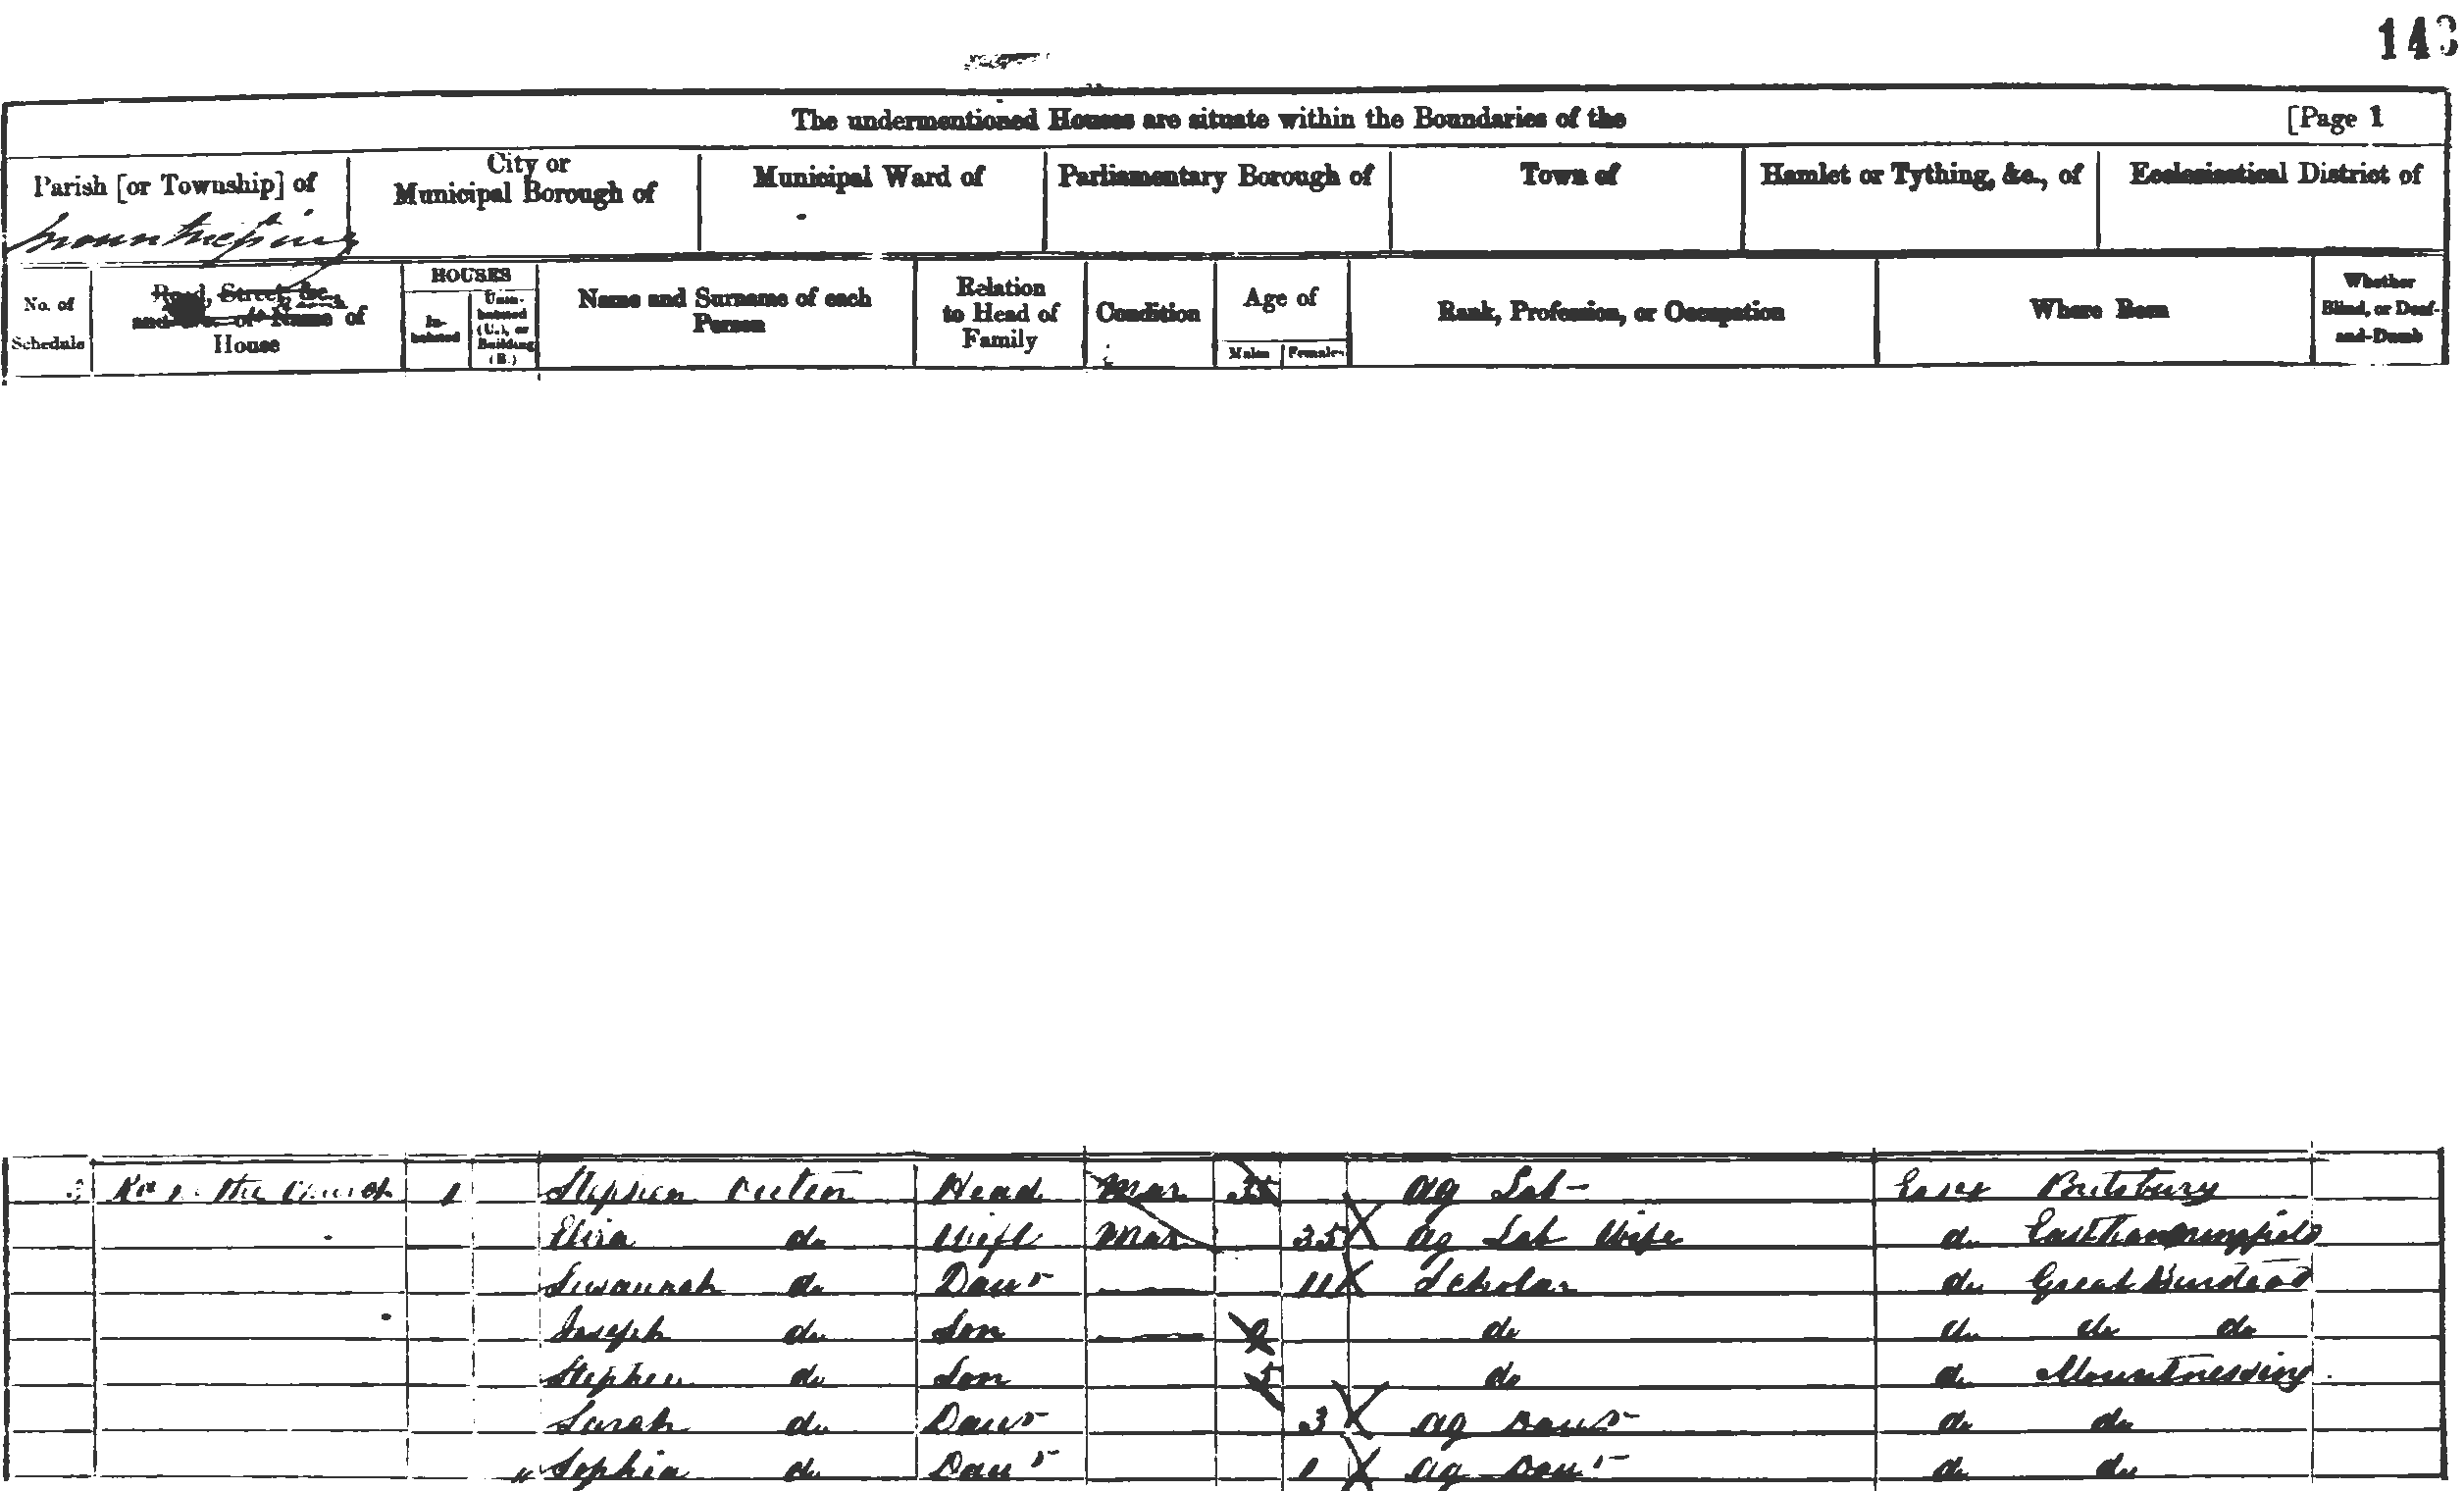 143
The undermentioned Houses are situate within the Boundaries of the [Page 1
Parish [or Township] of City or Municipal Borough of Municipal Ward of Parliamentary Borough of Town of Hamlet or Tything, &c., of Ecclesiastical District of
Mountnessing
No. of Schedule Road, Street, &c., and No. or Name of House HOUSES In-habited Unin-habited (U.), or Building (B.) Name and Surname of each Person Relation to Head of Family Condition Age of Males Females Rank, Profession, or Occupation Where Born Whether Blind, or Deaf-and-Dumb
3 the Church 1 Stephen Head Mar 35 Ag Lab Essex Butsbury
Eliza do Wife Mar 35 Ag Lab Wife do
Susannah do Daur 11 Scholar do Great Burstead
Joseph do Son 9 do do do do
Stephen do Son 5 do do Mountnessing
Sarah do Daur 3 Ag Daur do do
Sophia do Daur 1 Ag Daur do do